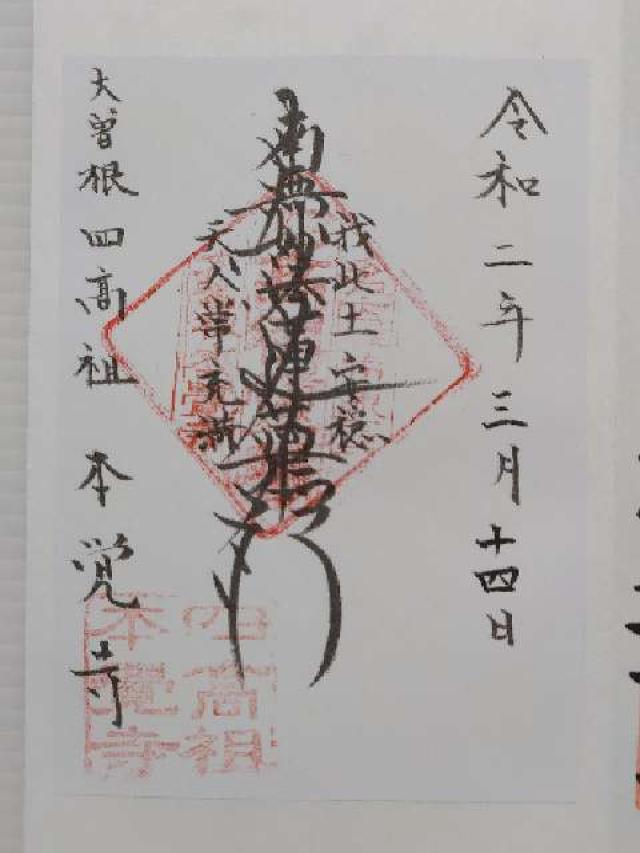 令和二年三月十四日
我此土安穏
南無妙法蓮華経
天人常充満
大曽根四高祖 本覚寺
四高祖
本覺寺